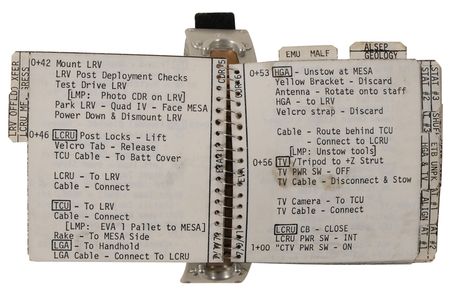 EMU MALF
ALSEP
GEOLOGY
0+42 Mount LRV
LRV Post Deployment Checks
Test Drive LRV
[LMP: Photo CDR on LRV]
Park LRV - Quad IV - Face MESA
Power Down & Dismount LRV
0+46 LCRU Post Locks - Lift
Velcro Tab - Release
TCU Cable - To Batt Cover
LCRU - To LRV
Cable - Connect
TCU - To LRV
Cable - Connect
[LMP: EVA 1 Pallet to MESA]
Rake - To MESA Side
LGA - To Handhold
LGA Cable - Connect To LCRU
0+53 HGA - Unstow at MESA
Yellow Bracket - Discard
Antenna - Rotate onto staff
HGA - to LRV
Velcro strap - Discard
Cable - Route behind TCU
- Connect to LCRU
[LMP: Unstow tools]
0+56 TV/Tripod to +Z Strut
TV PWR SW - OFF
TV Cable - Disconnect & Stow
TV Camera - To TCU
TV Cable - Connect
LCRU CB - CLOSE
LCRU PWR SW - INT
1+00 "CTV PWR SW - ON
LRV OFFLD
XFER
STAT #2
HGA & TV